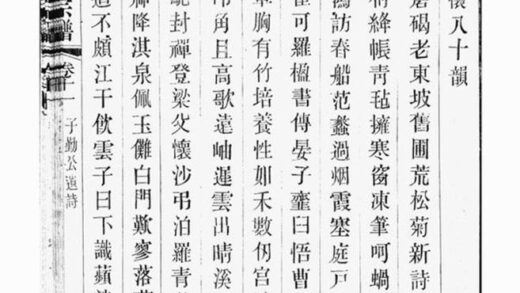 懷八十韻
磨礪老東坡舊圃荒松菊新詩
絳帳青毡擁寒窗凍筆呵蝸
訪春船范蠡過烟霞塞庭戸
可羅楹書傳晏子虀臼悟曹
胸有竹培養性如禾數仞宮
角且高歌遠岫遲雲出晴溪
封禪登梁父懷沙弔泊羅青
降淇泉佩玉儺白門歎寥落
不頗江干飲雲子日下識蘋
宗譜 卷十一 子勤公遺詩